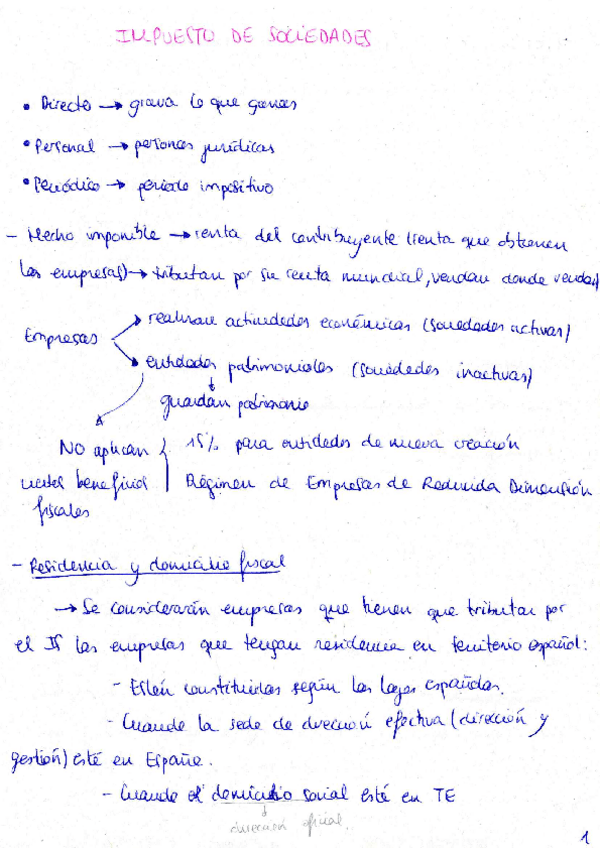 IMPUESTO DE SOCIEDADES
• Directo → grava lo que ganas
• Personal → personas jurídicas
• Periódico → periodo impositivo
- Hecho imponible → renta del contribuyente (renta que obtienen
las empresas) → tributan por su renta mundial, vendan donde vendan
Empresas → realizan actividades económicas (sociedades activas)
→ entidades patrimoniales (sociedades inactivas)
↓
guardan patrimonio
NO aplican { 15% para entidades de nueva creación
beneficios | Régimen de Empresas de Reducida Dimensión
fiscales
- Residencia y domicilio fiscal
→ Se considerarán empresas que tienen que tributar por
el IS las empresas que tengan residencia en territorio español:
- Estén constituidas según las leyes españolas.
- Cuando la sede de dirección efectiva (dirección y
gestión) esté en España.
- Cuando el domicilio social esté en TE
↓
dirección oficial.
1